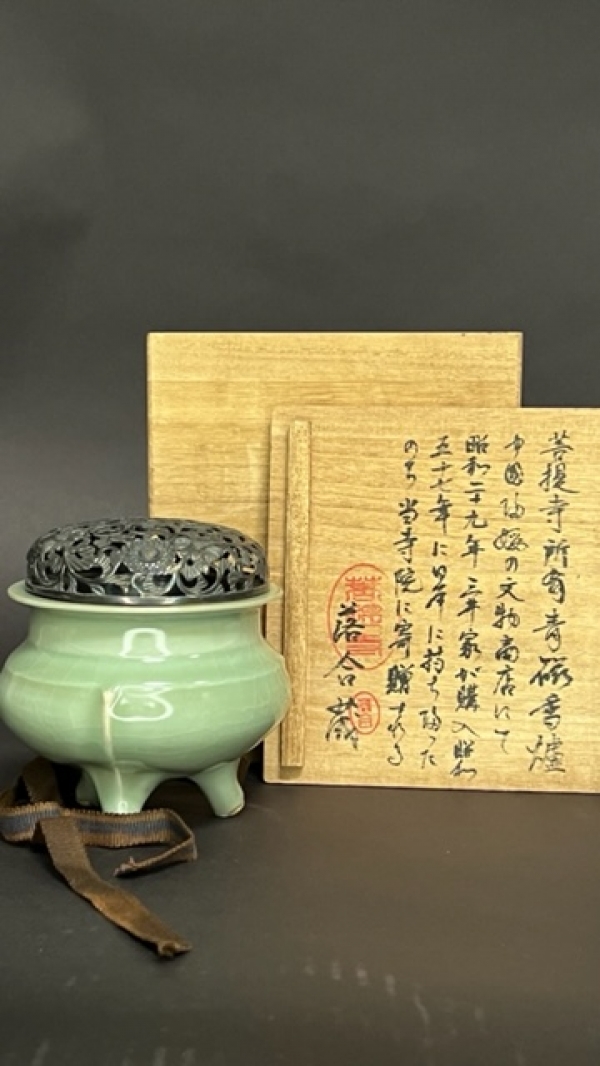 菩提寺所有青磁香爐
中國の文物商店にて
昭和二十九年三年家が購入昭和
五十七年に日本に持ち帰った
のち当寺院に寄贈される
落合蔵